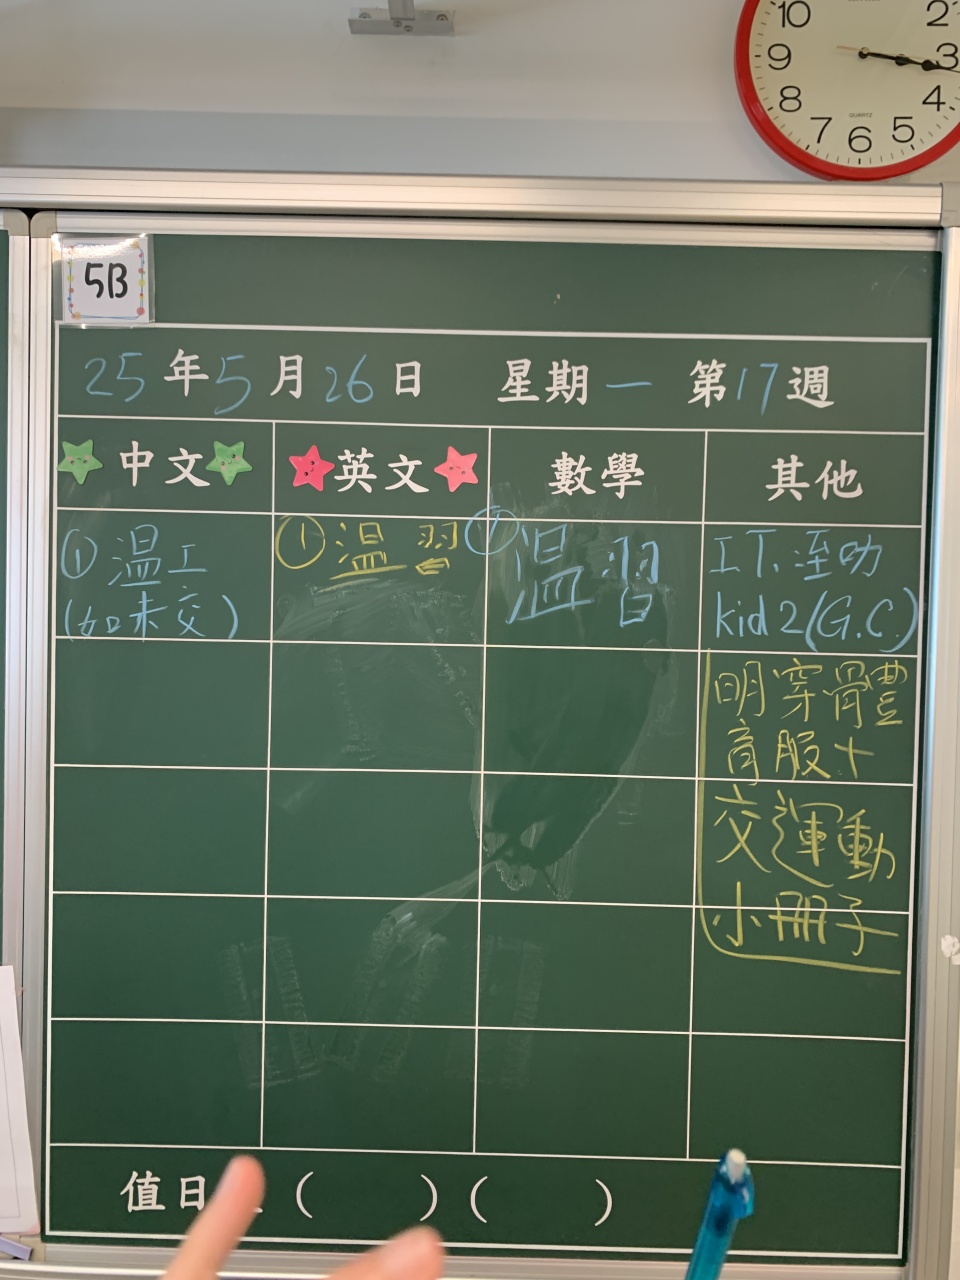 10
2
9
3
8
4
7
6
5
QUARTZ
5B
25年5月26日 星期一 第17週
中文 英文 數學 其他
①溫工
(如未交)
①溫習
①溫習
I.T.
kid 2(G.C.)
明穿體
育服+
交運動
小冊子
值日 ( ) ( )